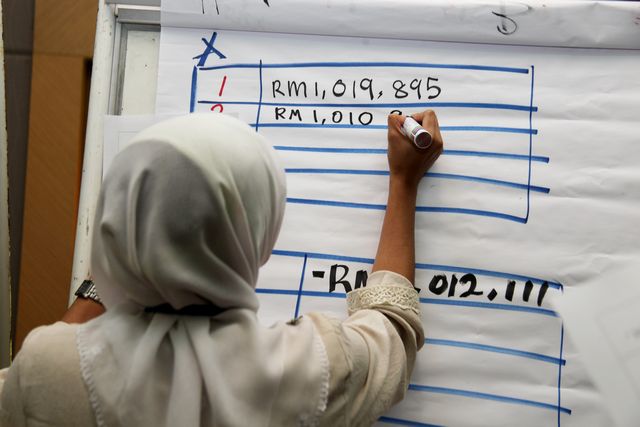 X
1 RM1,019,895
2 RM1,010
-RM 012,111